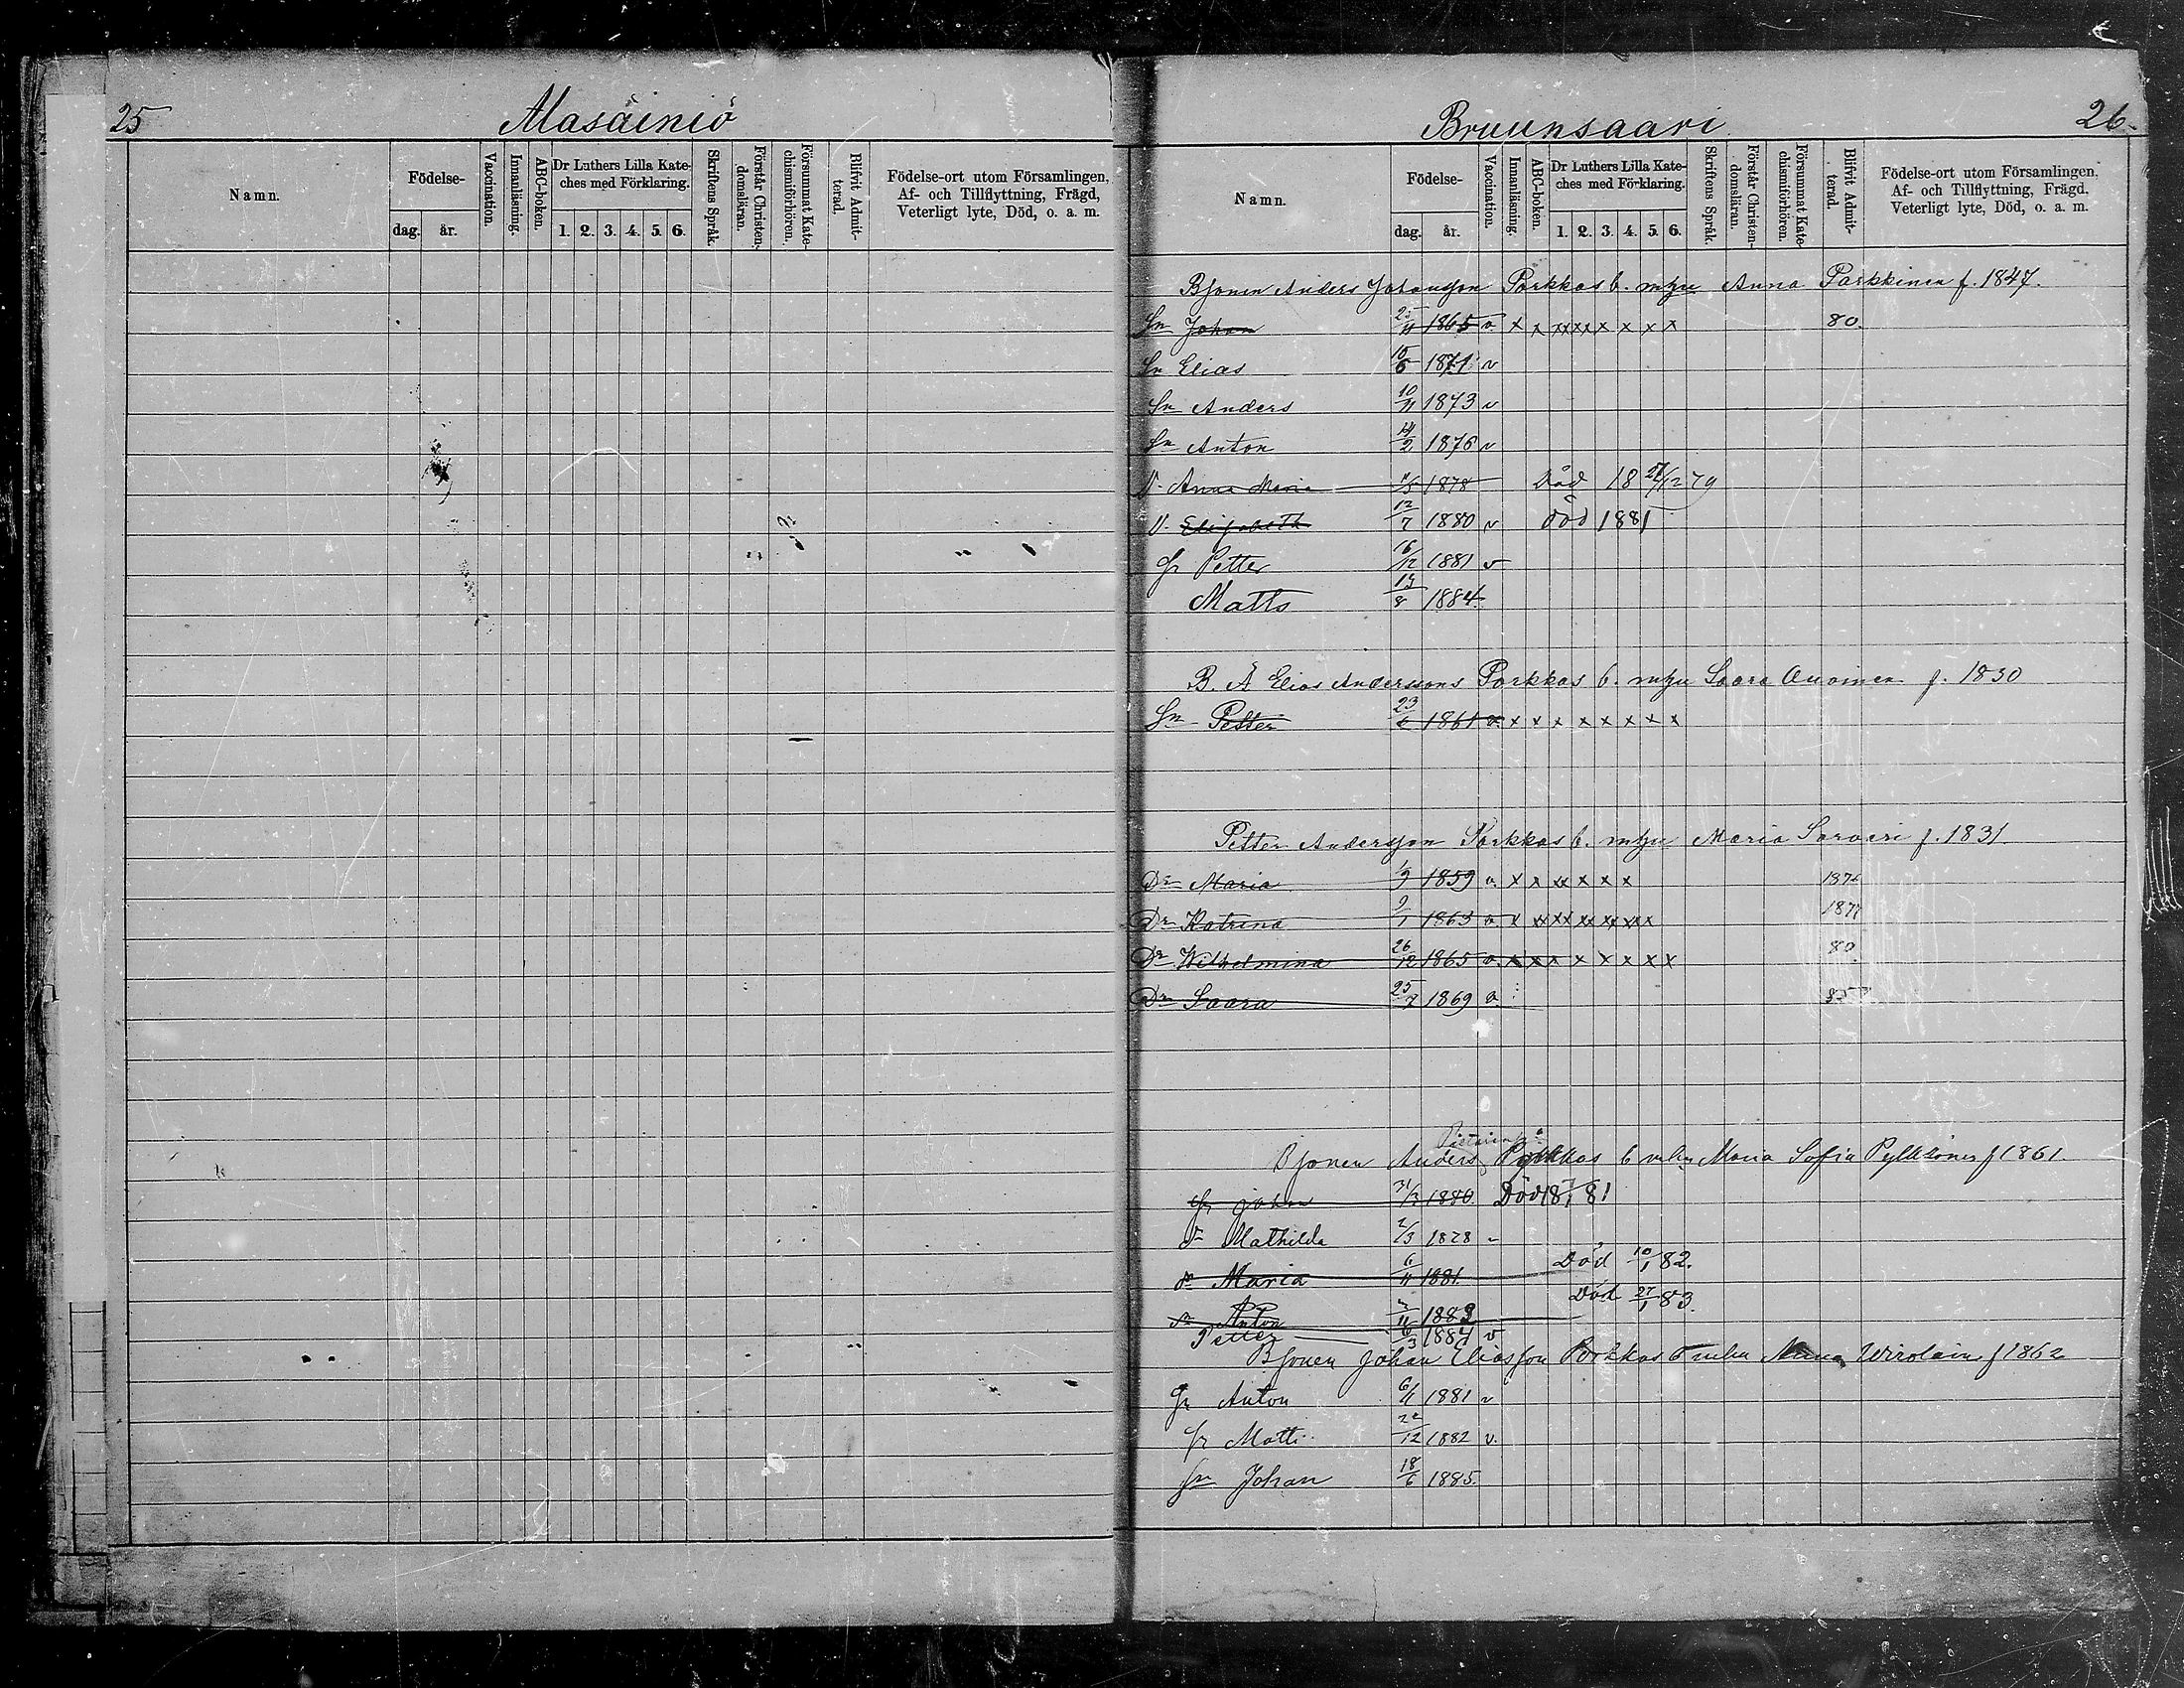 25 Alasäiniö
Namn. Födelse- dag. år. Vaccination. Innanläsning. ABC-boken. Dr Luthers Lilla Kate-ches med Förklaring. 1. 2. 3. 4. 5. 6. Skriftens Språk. Förstår Christen-domsläran. Försummat Kate-chismiförhören. Blifvit Admit-terad. Födelse-ort utom Församlingen, Af- och Tillflyttning, Frägd, Veterligt lyte, Död, o. a. m.
Bruunsaari 26.
Namn. Födelse- dag. år. Vaccination. Innanläsning. ABC-boken. Dr Luthers Lilla Kate-ches med Förklaring. 1. 2. 3. 4. 5. 6. Skriftens Språk. Förstår Christen-domsläran. Försummat Kate-chismiförhören. Blifvit Admit-terad. Födelse-ort utom Församlingen, Af- och Tillflyttning, Frägd, Veterligt lyte, Död, o. a. m.
Bsonen Anders Johansson Porkkas b. m hu Anna Parkkinen f. 1847.
Sn Johan 25/11 1865 v x x xx xx x x x x 80.
Sn Elias 15/6 1871 v
Sn Anders 10/11 1873 v
Sn Anton 14/2 1876 v
D. Anna Maria 1/5 1878 Död 18 27/12 79
D. Elisabeth 12/7 1880 v död 1881
Sn Petter 16/12 1881 v
Matts 19/8 1884.
B. A Elias Anderssons Porkkas b. m hu Saara f. 1830
Sn Petter 23/6 1861 v. x x x x x x x x
Petter Andersson Porkkas b. m hu Maria Sorvari f. 1831.
Dr Maria 1/9 1859 v. x x xx x x x 1876
Dr Katrina 9/1 1863 v. x xx xx xx xx xx 1877
Dr Wilhelmina 26/12 1865 v. x x x x x x x x 80.
Dr Saara 25/7 1869 v 85
Bsonen Anders Porkkas b m hu Maria Sofia f 1861.
Sn Johan 31/3 1880. Död 18 7/1 81
Dr Mathilda 2/3 1878 v
Dr Maria 6/11 1881. Död 10/1 82.
Sn Anton 1882 Död 27/1 83.
Petter 6/3 1884 v
Bsonen Johan Eliasson Porkkas b m hu Anna Wirolain f 1862
Sn Anton 6/11 1881 v
Sn Matti 22/12 1882 v.
Sn Johan 18/6 1885.